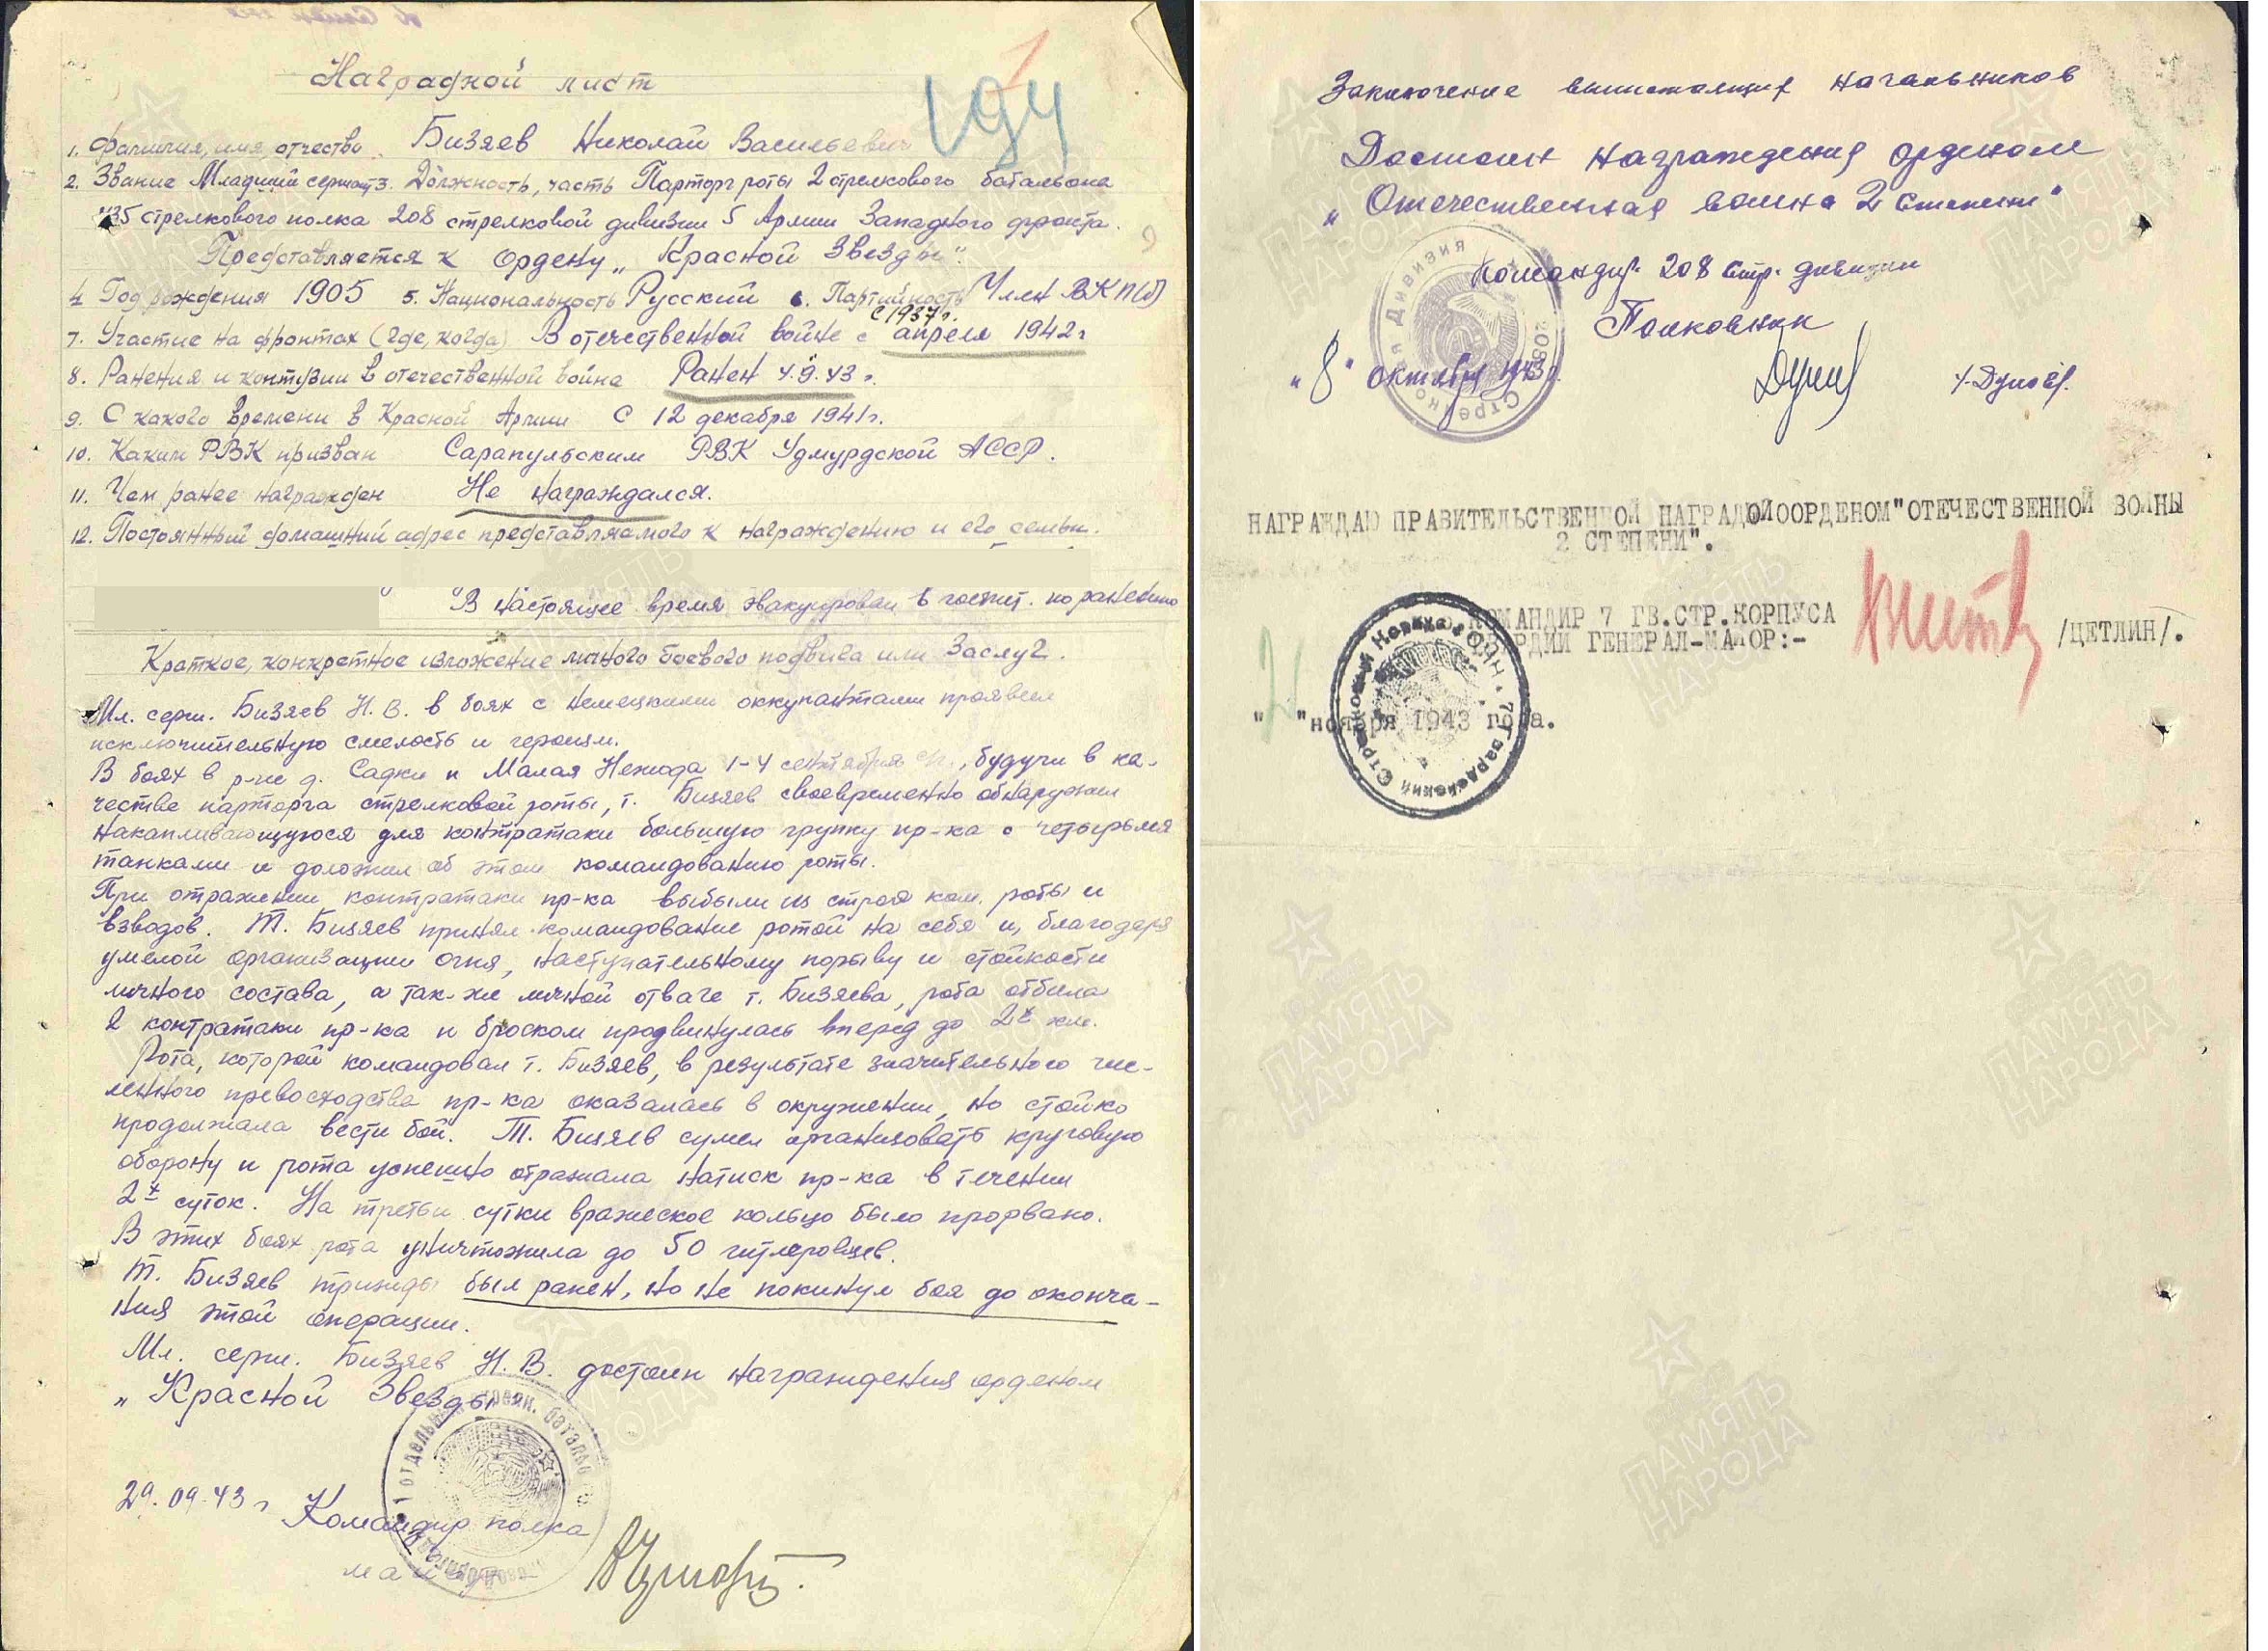 Наградной лист
194
1. Фамилия, имя, отчество. Бизяев Николай Васильевич
2. Звание Младший сержант 3. Должность, часть Парторг роты 2 стрелкового батальона
435 стрелкового полка 208 стрелковой дивизии 5 Армии Западного фронта.
Представляется к ордену „Красной Звезды".
4. Год рождения 1905 5. Национальность Русский 6. Партийность Член ВКП(б)
с 1937г.
7. Участие на фронтах (где, когда) В отечественной войне с апреля 1942г
8. Ранения и контузии в отечественной войне Ранен 4.9.43 г.
9. С какого времени в Красной Армии С 12 декабря 1941г.
10. Каким РВК призван Сарапульским РВК Удмурдской АССР.
11. Чем ранее награжден Не награждался.
12. Постоянный домашний адрес представляемого к награждению и его семьи.
В настоящее время эвакуирован в госпит. по ранению
Краткое, конкретное изложение личного боевого подвига или заслуг.
Мл. серж. Бизяев Н. В. в боях с немецкими оккупантами проявил
исключительную смелость и героизм.
В боях в р-не д. Садки и Малая Нежода 1-4 сентября , будучи в ка-
честве парторга стрелковой роты, т. Бизяев своевременно обнаружил
накапливающуюся для контратаки большую группу пр-ка с четырьмя
танками и доложил об этом командованию роты.
При отражении контратаки пр-ка выбыли из строя ком. роты и
взводов. Т. Бизяев принял командование ротой на себя и, благодаря
умелой организации огня, наступательному порыву и стойкости
личного состава, а так-же личной отваге т. Бизяева, рота отбила
2 контратаки пр-ка и броском продвинулась вперед до 2х км.
Рота, которой командовал т. Бизяев, в результате значительного чис-
ленного превосходства пр-ка оказалась в окружении, но стойко
продолжала вести бой. Т. Бизяев сумел организовать круговую
оборону и рота успешно отражала натиск пр-ка в течении
2х суток. На третьи сутки вражеское кольцо было прорвано.
В этих боях рота уничтожила до 50 гитлеровцев.
Т. Бизяев трижды был ранен, но не покинул боя до оконча-
ния этой операции.
Мл. серж. Бизяев Н. В. достоин награждения орденом
„Красной Звезды"
29.09.43 г Командир полка
майор
Заключение вышестоящих начальников
Достоин награждения орденом
„Отечественная война 2 степени"
Командир 208 стр. дивизии
Полковник
"8" октября 1943 г.
СТРЕЛКОВАЯ ДИВИЗИЯ 208
НАГРАЖДАЮ ПРАВИТЕЛЬСТВЕННОЙ НАГРАДОЙ ОРДЕНОМ "ОТЕЧЕСТВЕННОЙ ВОЙНЫ
2 СТЕПЕНИ".
КОМАНДИР 7 ГВ.СТР.КОРПУСА
ГВАРДИИ ГЕНЕРАЛ-МАЙОР:-
/ЦЕТЛИН/.
" "ноября 1943 года.
ПАМЯТЬ НАРОДА